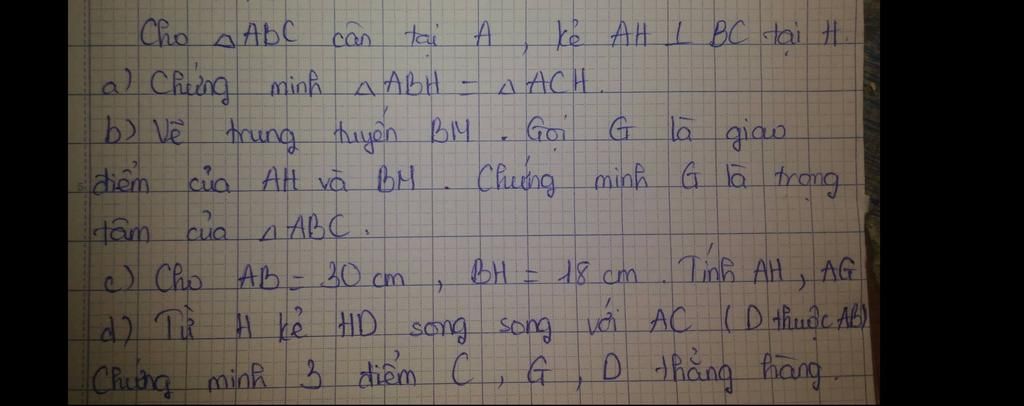 Cho △ABC cân tại A, kẻ AH ⊥ BC tại H.
a) Chứng minh △ABH = △ACH.
b) Vẽ trung tuyến BM. Gọi G là giao
điểm của AH và BM. Chứng minh G là trọng
tâm của △ABC.
c) Cho AB = 30 cm, BH = 18 cm. Tính AH, AG
d) Từ H kẻ HD song song với AC (D thuộc AB)
Chứng minh 3 điểm C, G, D thẳng hàng.